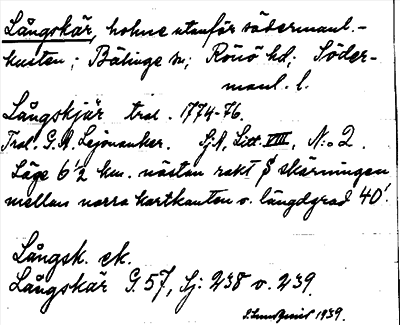 Långskär, holme utanför södermanl.-
kusten; Bälinge sn; Rönö hd; Söder-
manl. l.
Långskjär tral. 1774-76.
Tral. G.A. Lejonanker. Sj.A. Litt. VIII, N:o 2.
Läge 6 1/2 km. nästan rakt S skärningen
mellan norra kartkanten o. längdgrad 40'.
Långsk. ek.
Långskär G. 57, Sj: 238 o. 239.
1939.